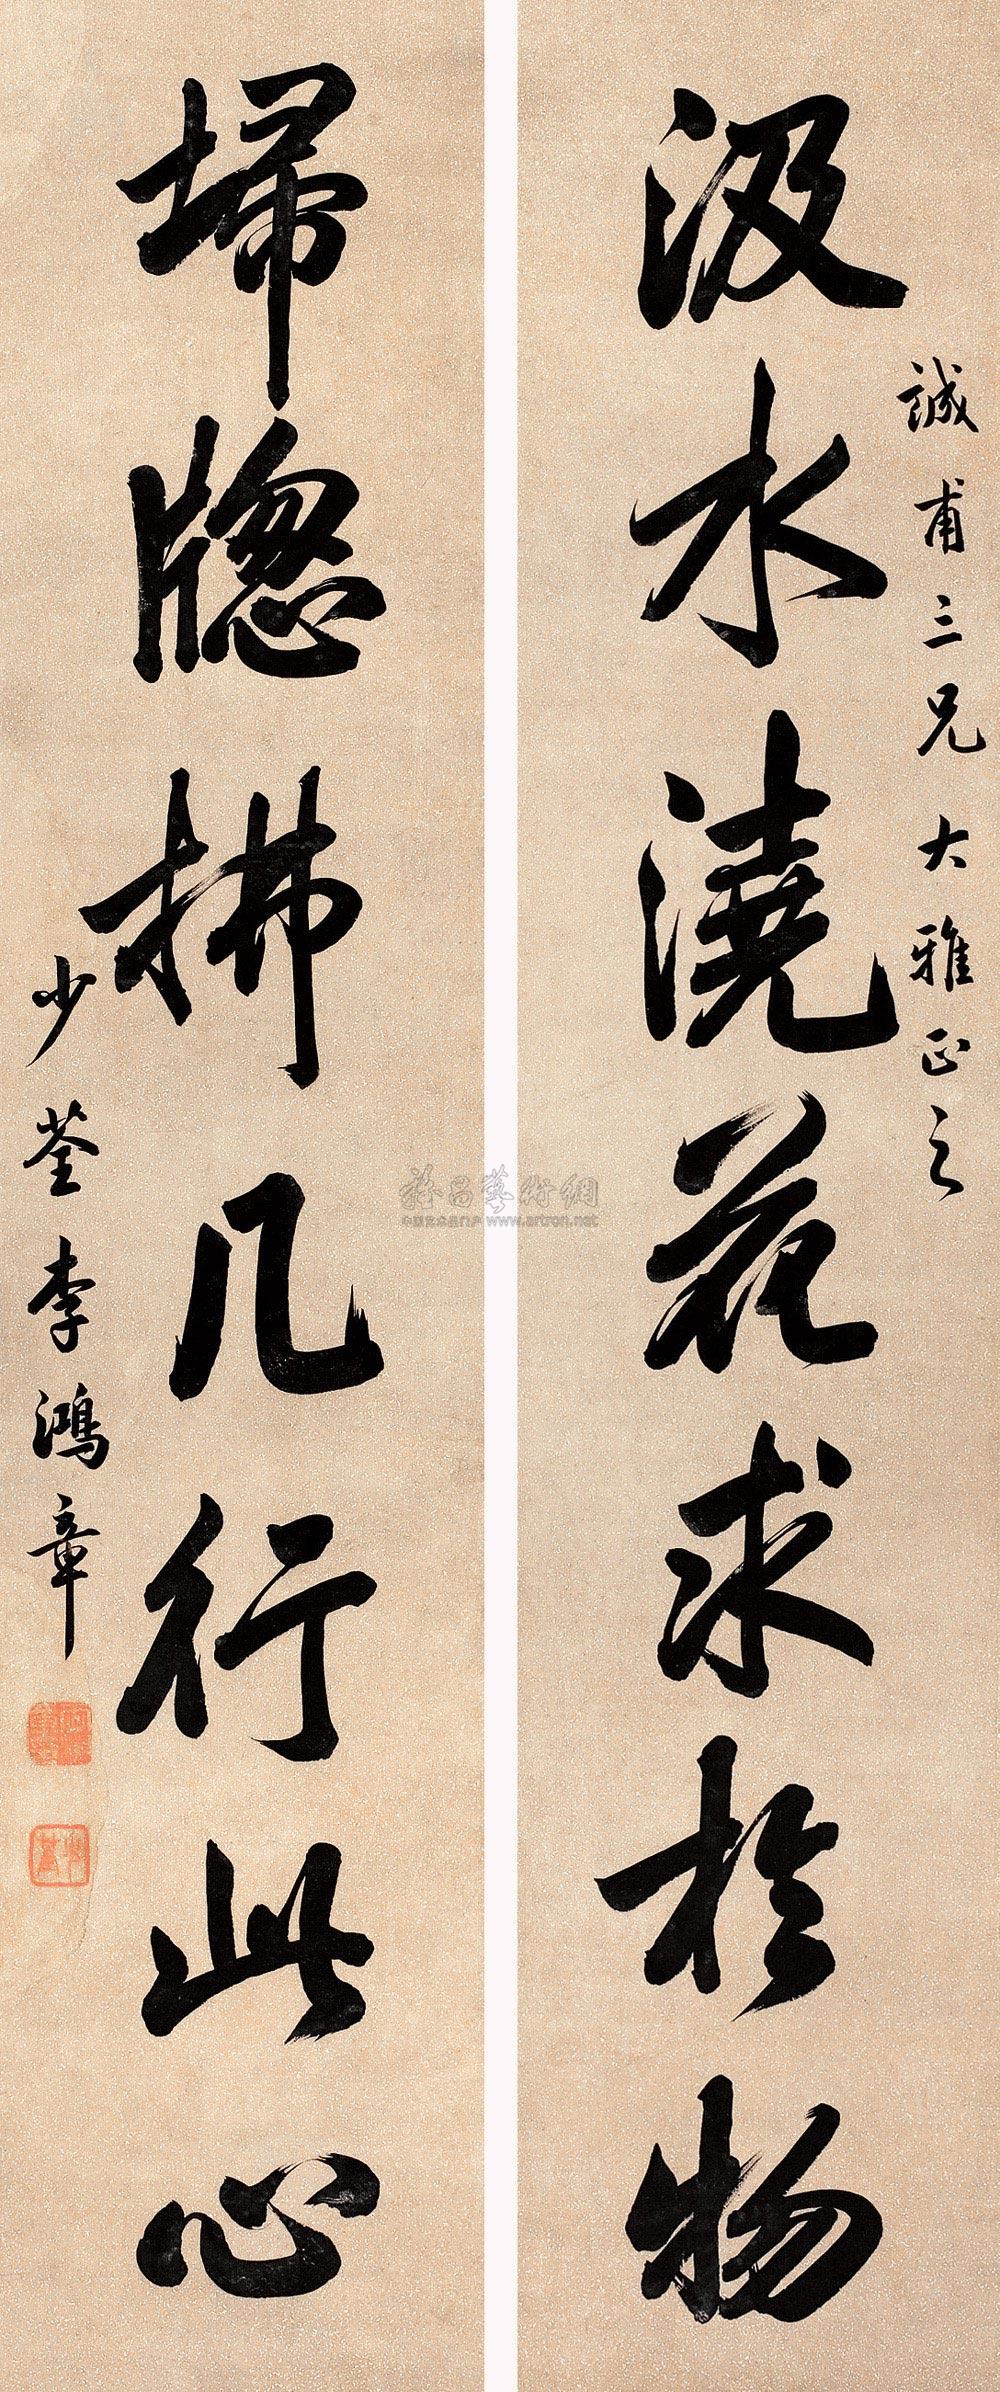 汲水澆花求於物
誠甫三兄大雅正之
埽牎拂几行此心
少荃李鴻章
www.artron.net